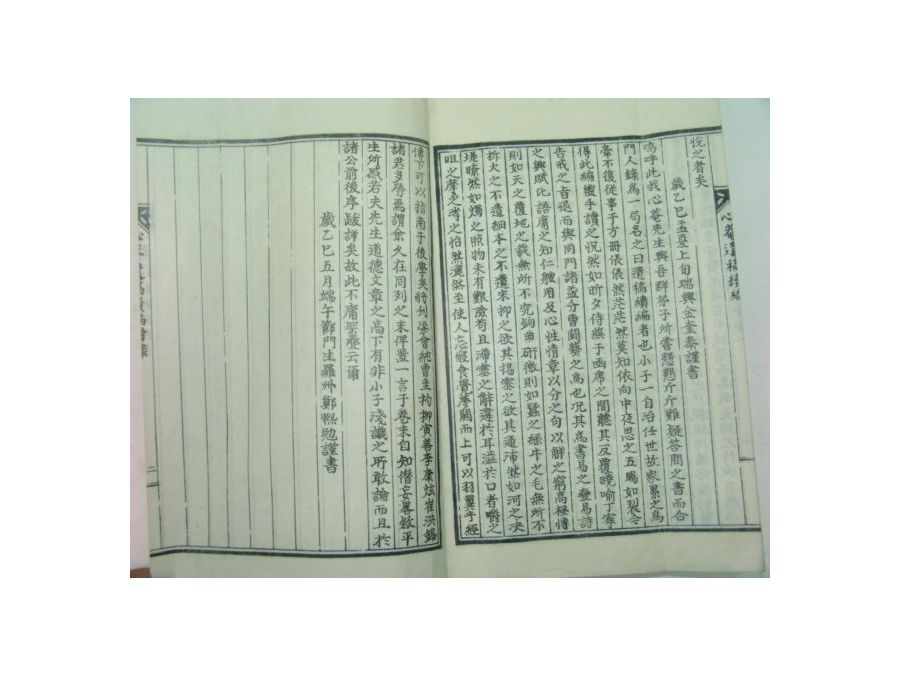 悅之者矣
歲乙巳孟夏上旬瑞興金奎泰謹書
嗚呼此我心菴先生與吾群弟子所嘗戀戀斤斤難疑答問之書而合
門人錄爲一局名之曰遺稿續編者也小子一自治任世故家累之爲
橐不復從事于方冊倀倀然茫茫然莫知依向中夜思之五腸如裂今
得此編擎手讀之怳然如昕夕侍燕于函席之間聽其反覆曉喻丁寧
告戒之旨退而與同門諸益分曹鬪藝之爲也況其爲書易之變易詩
之興賦化語庸之知仁體用及心性情章以分之句以解之窮高極博
則如天之覆地之載無所不究鉤曲研微則如蠶之絲牛之毛無所不
拆大之不遺細本之不遺末抑之欲其揚塞之欲其通沛然如河之决
堤瞭然如燭之照物未有艱澁苟且滯塞之辭蓬於耳溢於口者嚼之
咀之摩之考之怡然灑然至使人忘寢食廢夢闘而上可以羽翼乎經
傳下可以指南于後學矣將刊梁會純曺圭杓柳寅善李康炫崔洪錫
諸君多勞焉謂余久在同列之末俾置一言于卷末自知僭妄畧敘平
生所感若夫先生道德文章之高下有非小子淺識之所敢論而且於
諸公前後序跋詳矣故此不庸架疊云爾
歲乙巳五月端午節門生羅州鄭熙勉謹書
心菴遺稿續編
二